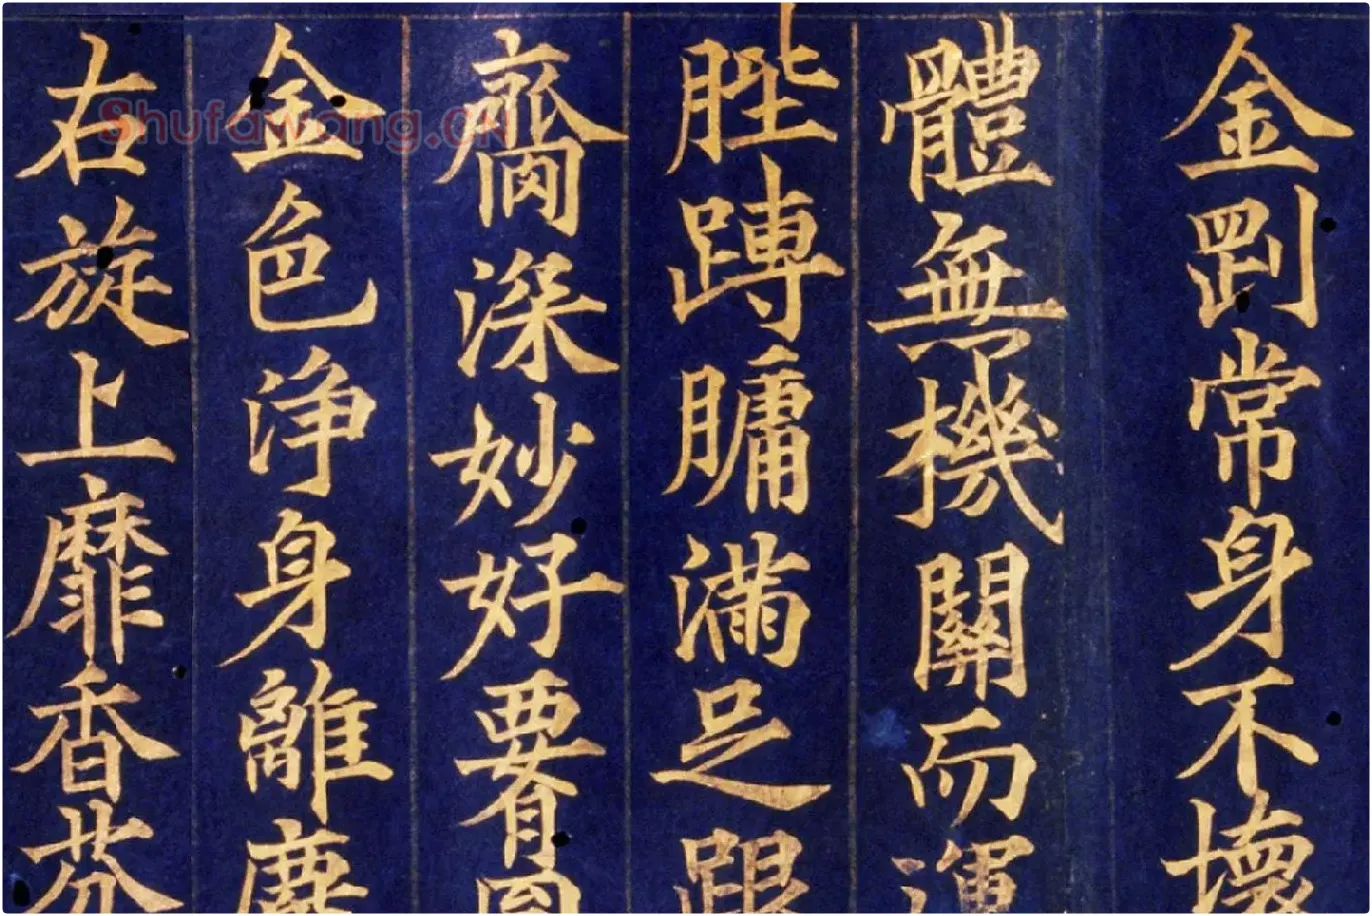 金剛常身不壞
體無機關而運
䏶𨄔𦟛滿足跟
臍深妙好要有圓
金色淨身離塵
右旋上靡香芬
Shufawang.CN